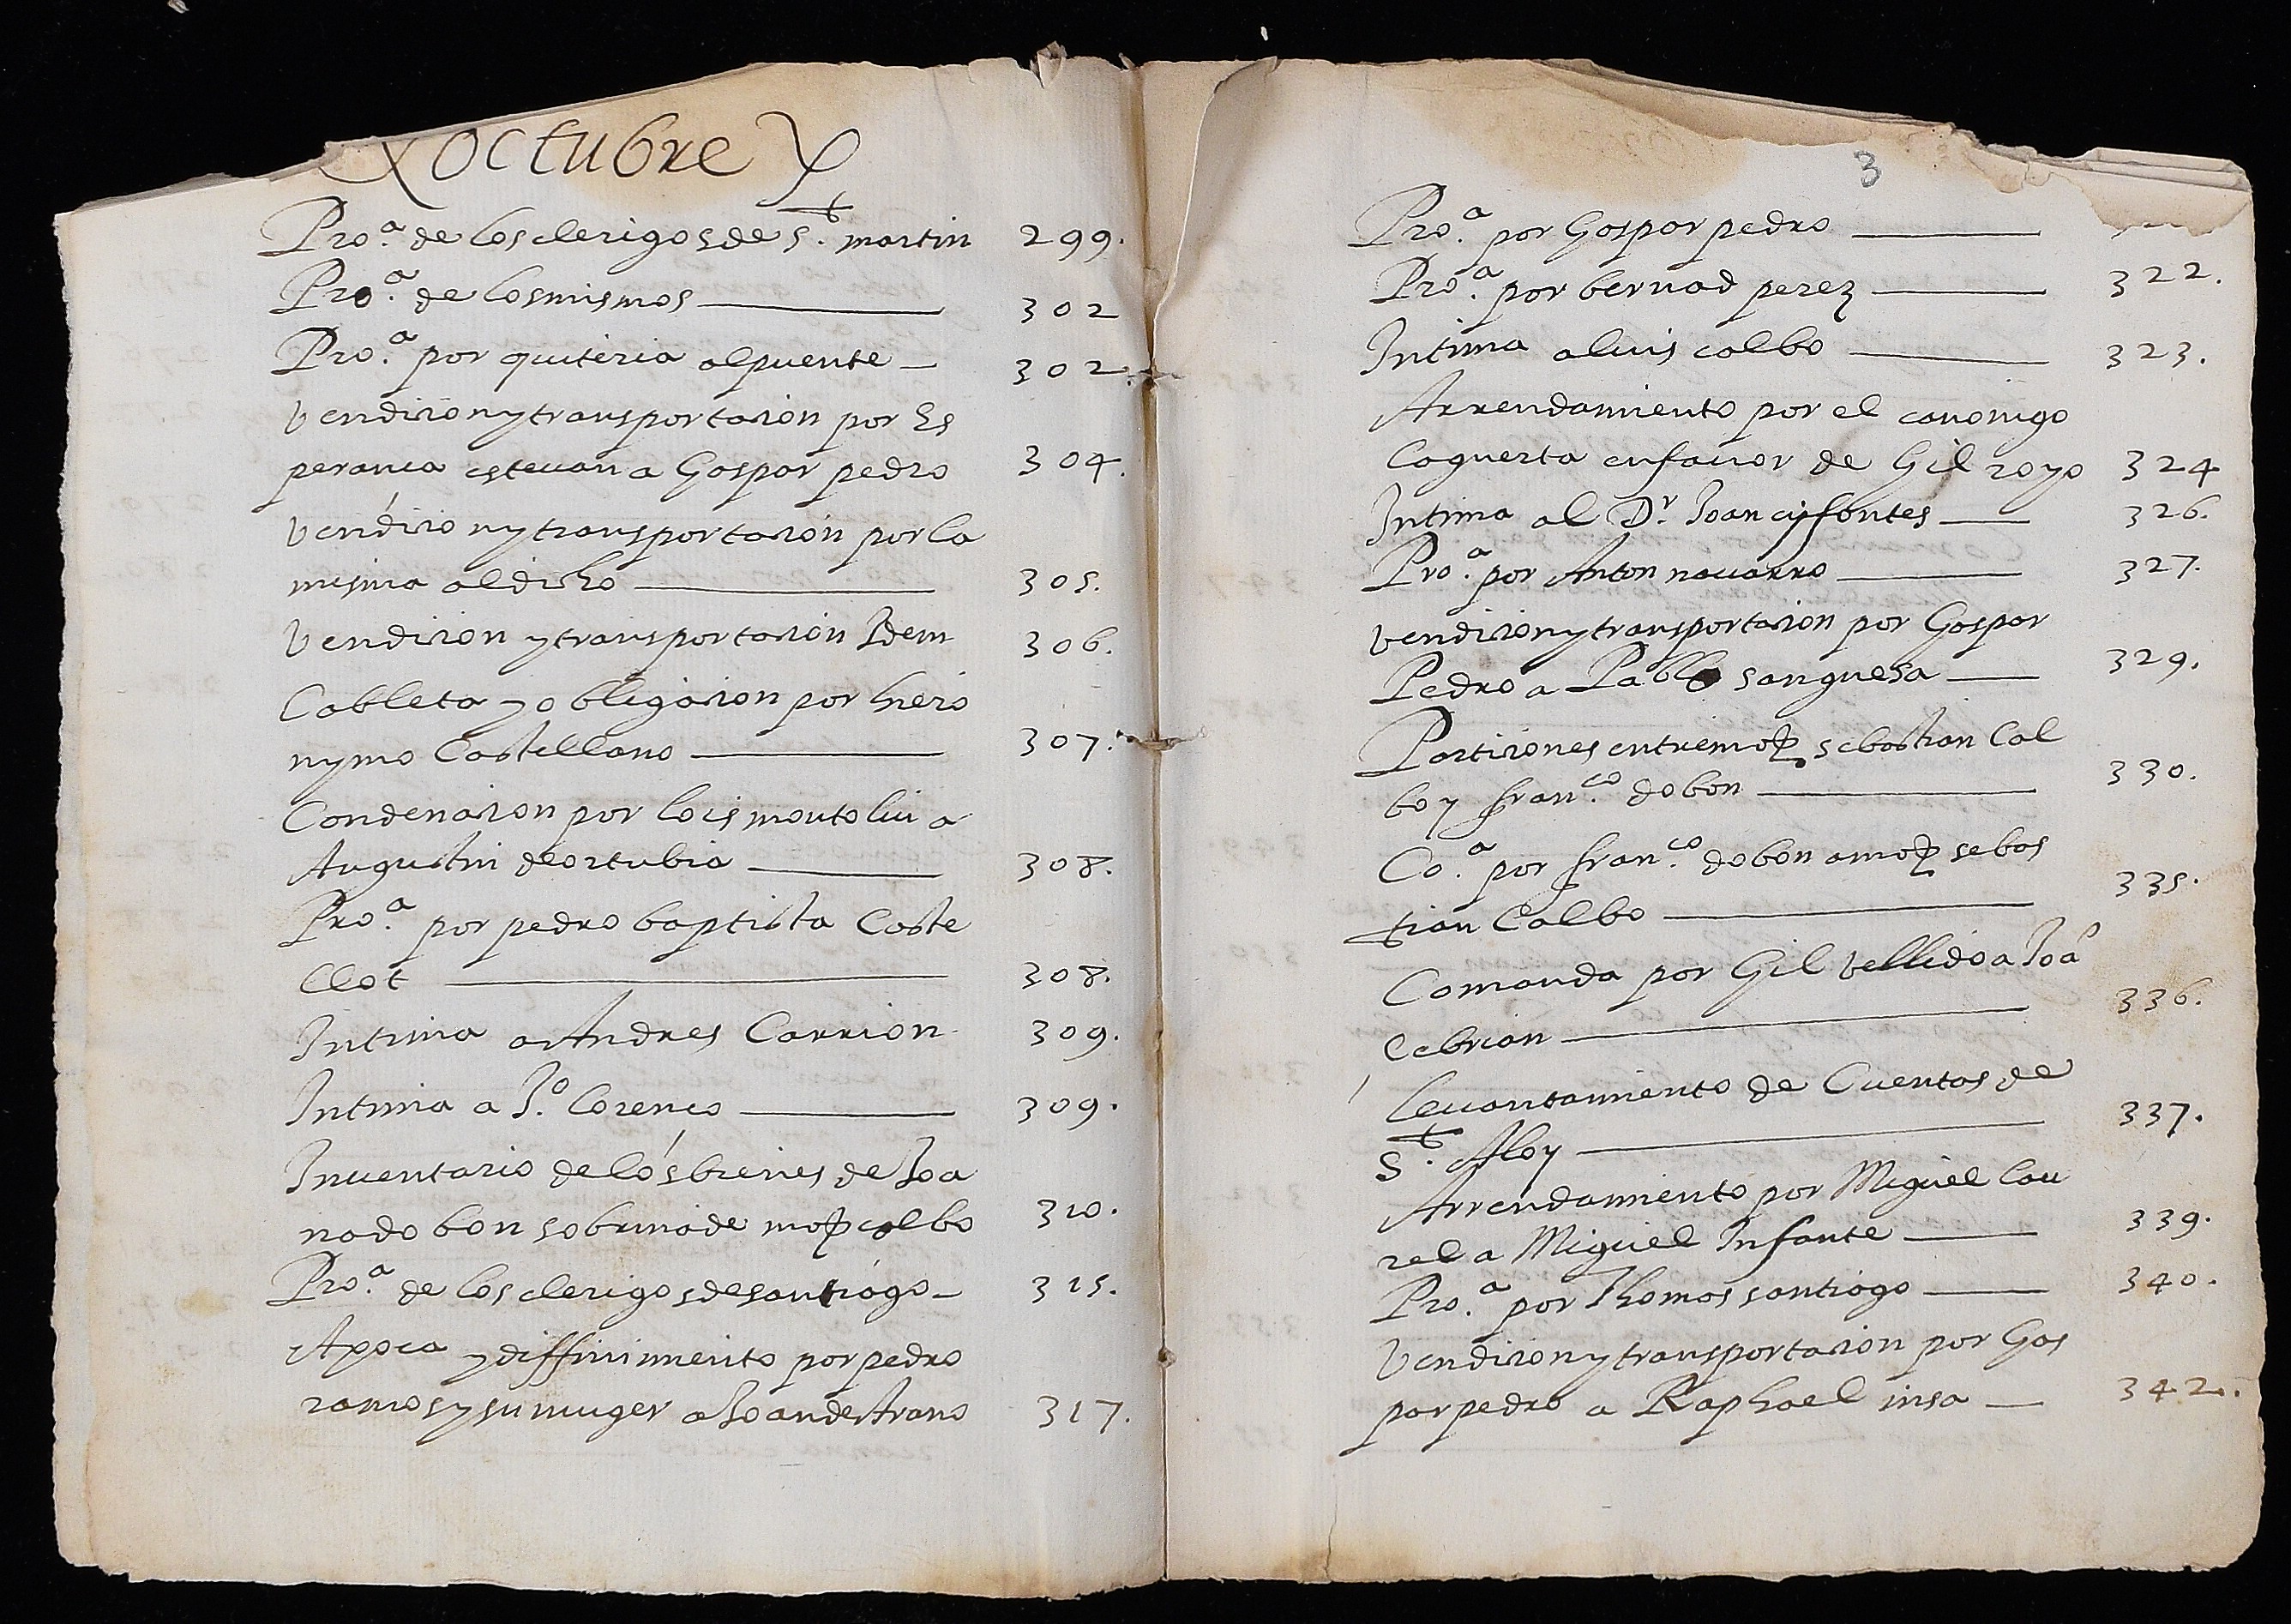 octubre
Pro.ª de los clerigos de S.t martin 299.
Pro.ª de los mismos 302
Pro.ª por quiteria alpuente 302.
Vendicion y transportacion por Es
peranca esteuan a Gaspar pedro 304.
Vendicion y transportacion por la
misma al dicho 305.
Vendicion y transportacion Idem 306.
Cableta y obligacion por hiero
nymo Castellano 307.
Condenacion por lois montoliu a
Augustin de ortubia 308.
Pro.ª por pedro baptista Caste
llot 308.
Intima a Andres Carrion 309.
Intima a Jº. lorenco 309.
Inuentario de los bienes de Joa
na dobon sobrina de mos calbo 310.
Pro.ª de los clerigos de santiago 315.
Apoca y diffinimiento por pedro
ramos y su muger a Joan de Arano 317.
3
Pro.ª por Gaspar pedro
Pro.ª por bernad perez 322.
Intima a luis calbo 323.
Arrendamiento por el canonigo
Caguerta en fauor de Gil royo 324
Intima al Dr. Joan cifontes 326.
Pro.ª por Anton nauarro 327.
vendicion y transportacion por Gaspar
Pedro a Pablo sanguesa 329.
Particiones entre mos sebastian Cal
bo y fran.co dobon 330.
Co.ª por fran.co dobon a mos sebas
tian Calbo 335.
Comanda por Gil vellido a Joa
Cebrian 336.
leuantamiento de Cuentas de
S.t Aloy 337.
Arrendamiento por Miguel lau
rel a Miguel Infante 339.
Pro.ª por Thomas santiago 340.
Vendicion y transportacion por Gas
par pedro a Raphael insa 342.